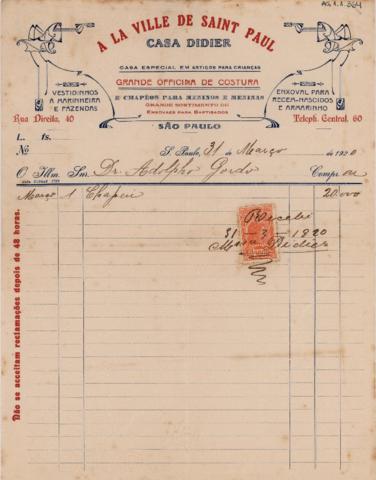 AG.1.1.364
A LA VILLE DE SAINT PAUL
CASA DIDIER
CASA ESPECIAL EM ARTIGOS PARA CRIANÇAS
GRANDE OFFICINA DE COSTURA
E CHAPÉOS PARA MENINOS E MENINAS
GRANDE SORTIMENTO DE
ENXOVAES PARA BAPTISADOS
SÃO PAULO
VESTIDINHOS
A MARINHEIRA
E FAZENDAS
Rua Direita, 40
ENXOVAL PARA
RECEM-NASCIDOS
E ARMARINHO
Teleph. Central, 60
L. fs.
No
S. Paulo, 31 de Março de 1920
O Illm. Snr. Dr. Adolpho Gordo Comprou
Março 1 Chapeu 20.000
Recebi
31-3-1920
Didier
Não se acceitam reclamações depois de 48 horas.